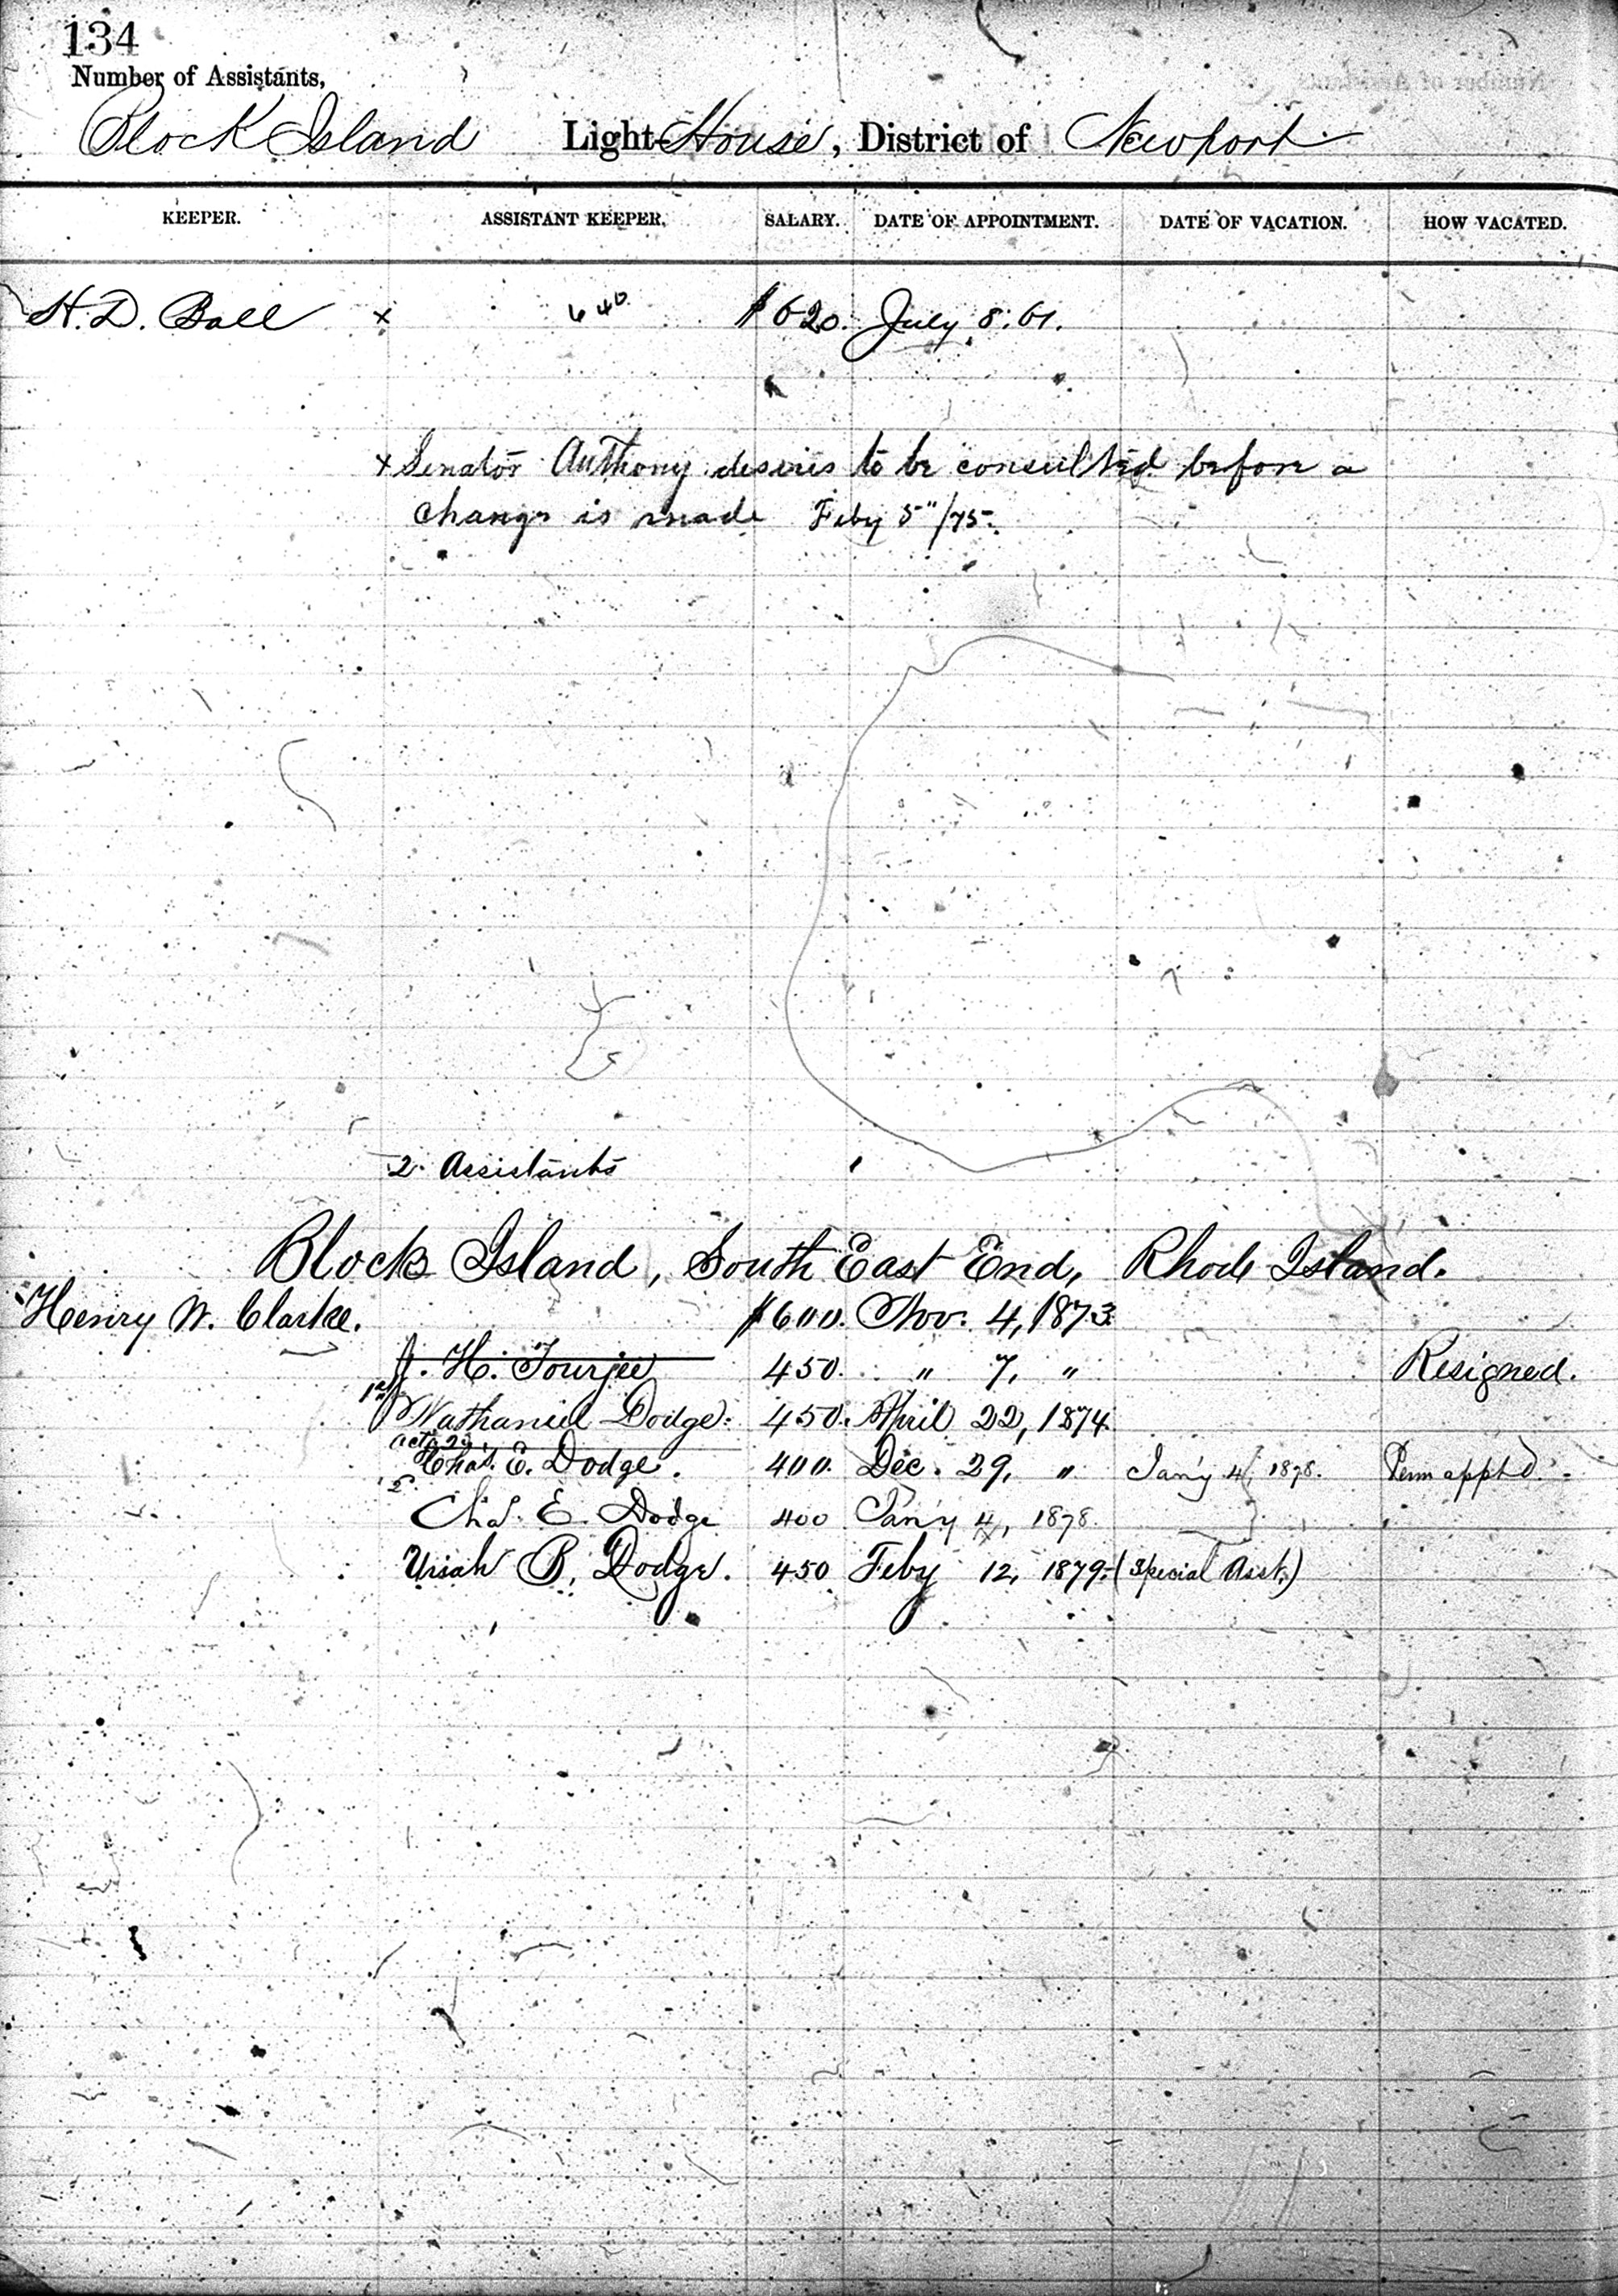 134
Number of Assistants,
Block Island Light-House, District of Newport
KEEPER. ASSISTANT KEEPER. SALARY. DATE OF APPOINTMENT. DATE OF VACATION. HOW VACATED.
H. D. Ball x 640 $620. July 8. 61.
x Senator Anthony desires to be consulted before a
change is made Feby 5"/75.
2. Assistants
Block Island, South East End, Rhode Island.
Henry W. Clarke. $600. Nov. 4, 1873
J. H. Tourjee 450. " 7, " Resigned.
1st Nathaniel Dodge. 450. April 22, 1874.
actg 2d
Chas. E. Dodge. 400. Dec. 29, " Jan'y 4, 1878. Perm appt'd.
2. Chas. E. Dodge 400 Jan'y 4, 1878.
Uriah B. Dodge. 450 Feby 12, 1879. (Special Asst.)